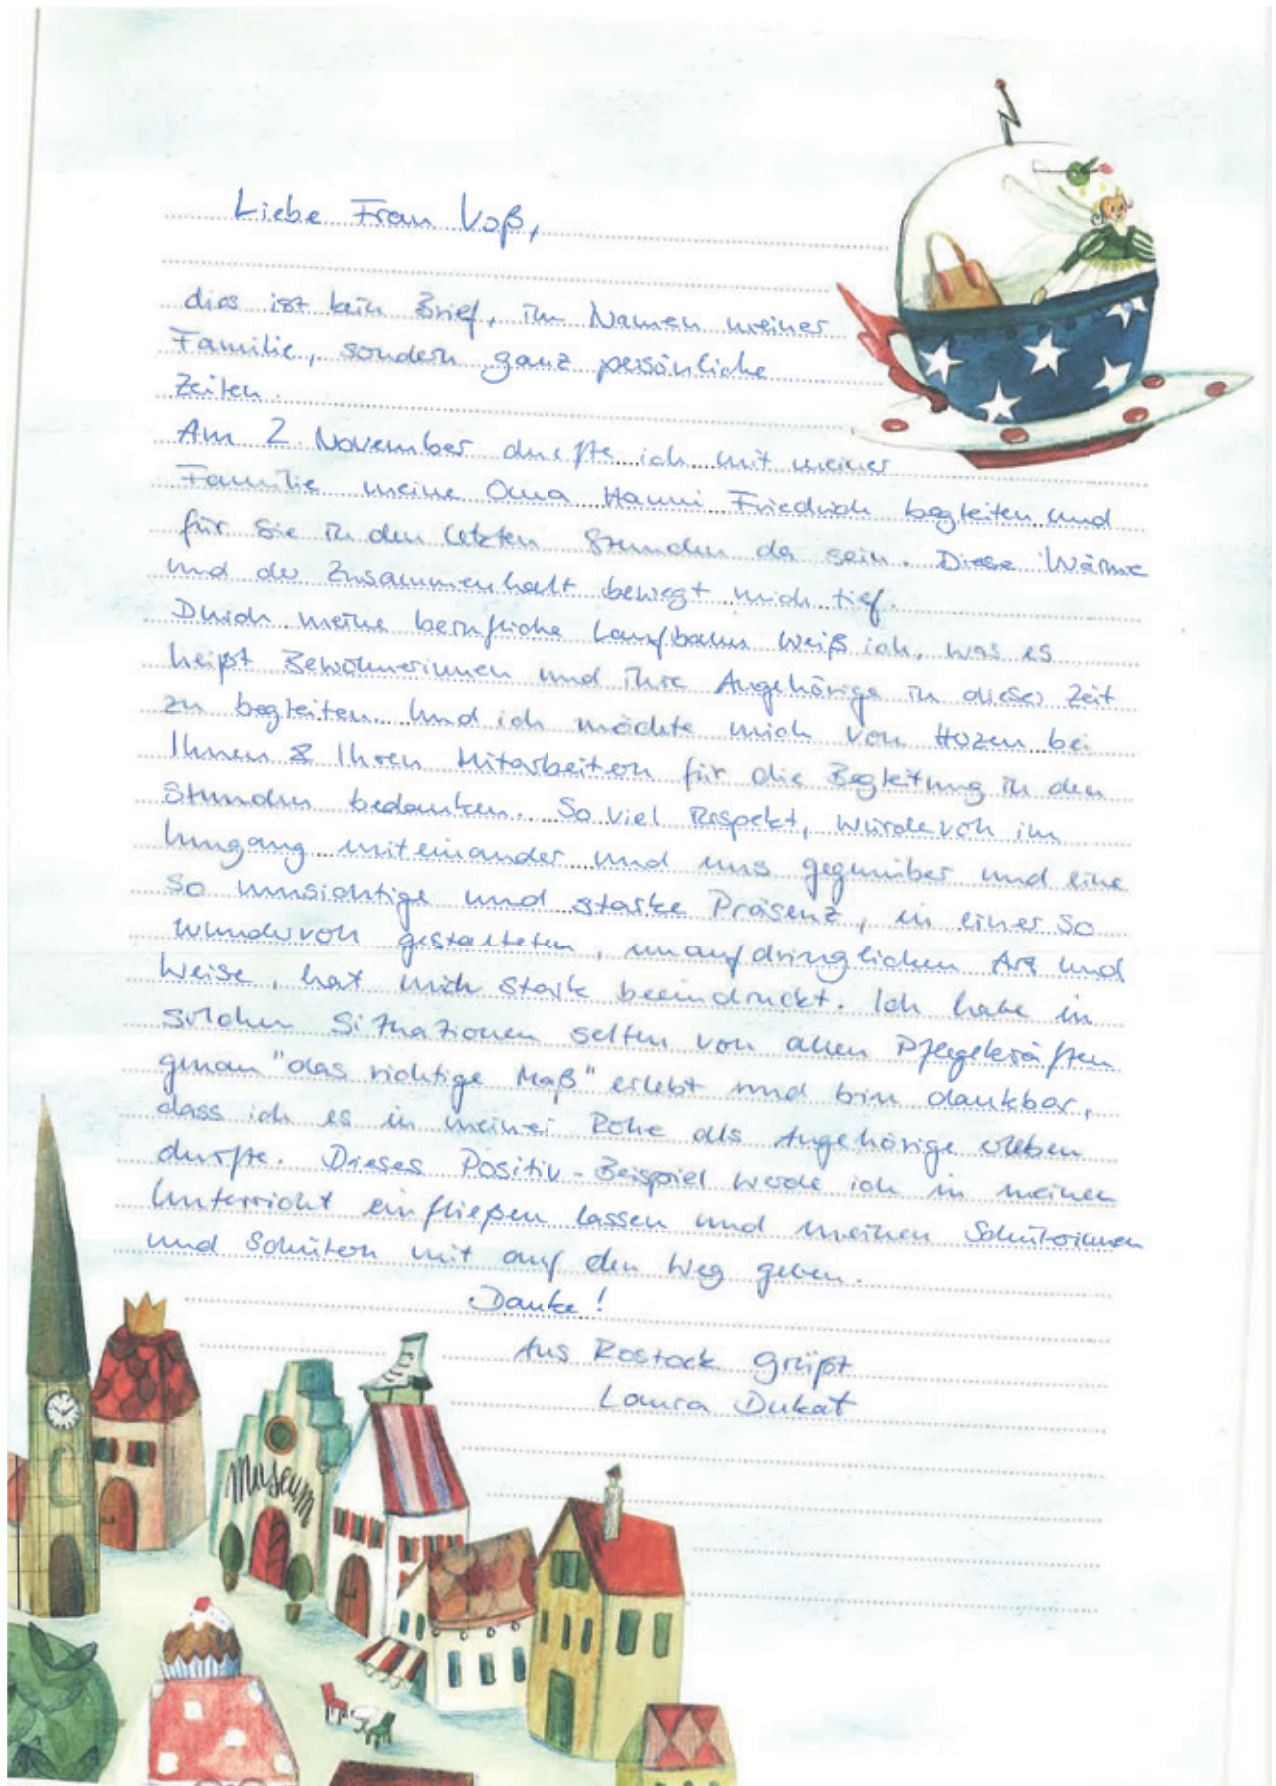 Liebe Frau Voß,
dies ist kein Brief, im Namen meiner
Familie, sondern ganz persönliche
Zeilen.
Am 2. November durfte ich mit meiner
Familie meine Oma Hanni Friedrich begleiten und
für Sie in den letzten Stunden da sein. Diese Wärme
und der Zusammenhalt bewegt mich tief.
Durch meine berufliche Laufbahn weiß ich, was es
heißt Bewohnerinnen und ihre Angehörige in dieser Zeit
zu begleiten. Und ich möchte mich von Herzen bei
Ihnen & Ihren Mitarbeitern für die Begleitung in den
Stunden bedanken. So viel Respekt, würdevoll im
Umgang miteinander und uns gegenüber und eine
so umsichtige und starke Präsenz, in einer so
wundervoll gestalteten, unaufdringlichen Art und
Weise, hat mich stark beeindruckt. Ich habe in
solchen Situationen selten von allen Pflegekräften
genau "das richtige Maß" erlebt und bin dankbar,
dass ich es in meiner Rolle als Angehörige erleben
durfte. Dieses Positiv-Beispiel werde ich in meinen
Unterricht einfließen lassen und meinen Schülerinnen
und Schülern mit auf den Weg geben.
Danke!
Aus Rostock grüßt
Laura Dukat
Museum